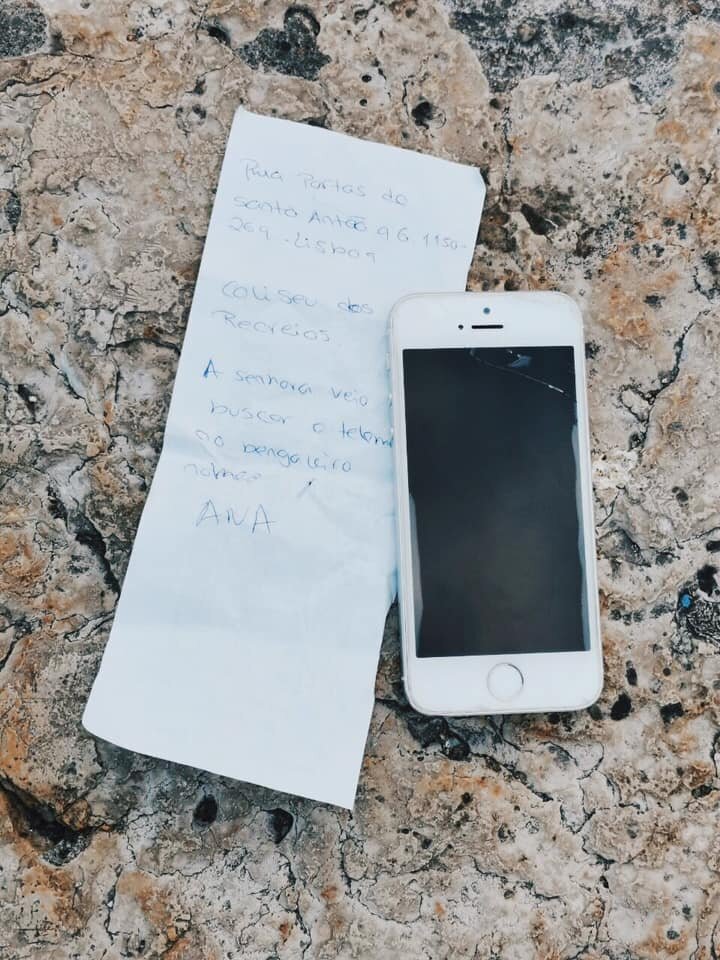 Rua Portas de
santo Antão 96 1150-
269 - Lisboa
Coliseu dos
Recreios.
A senhora veio
buscar o telem
ao bengaleiro
nome
ANA